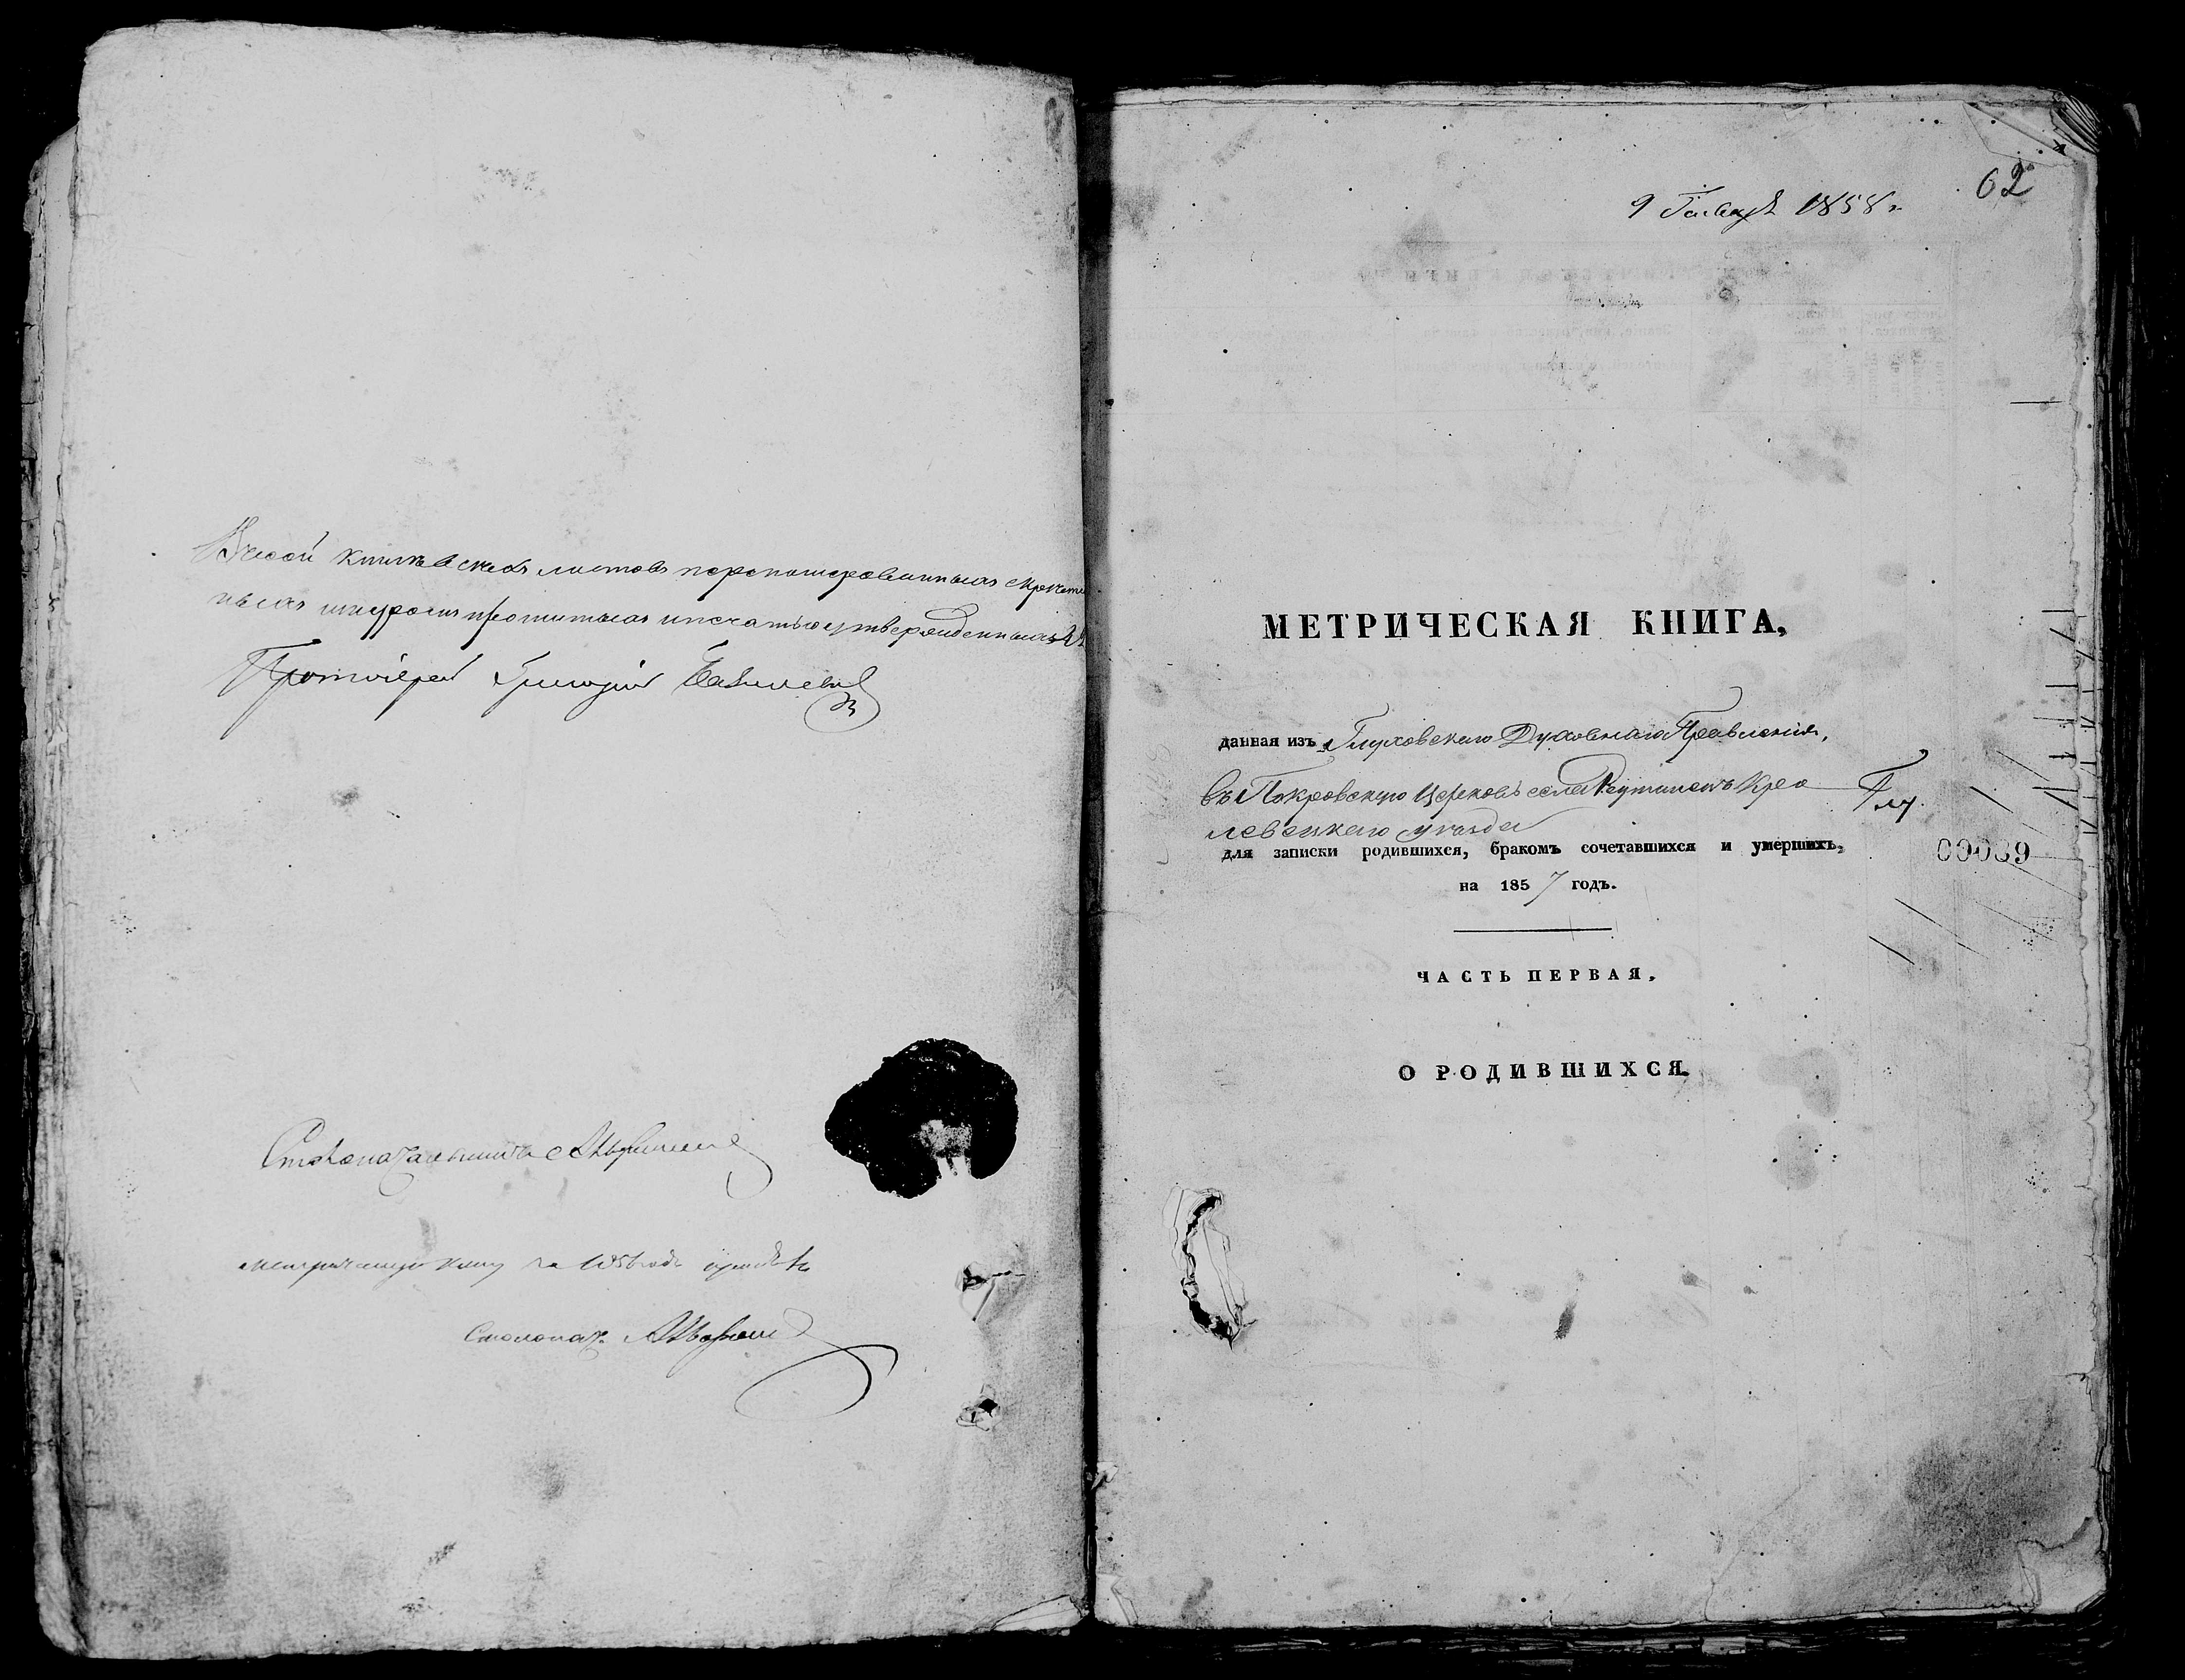 Въ сей книгѣ всехъ листовъ перенумерованныхъ скрепле
ныхъ шнуромъ прошитыхъ и печатью утвержденныхъ
Протоіерей Григорій
Столоначальникъ
метрическую книгу за год
Столонач.
62
9 Генваря 1858 г.
МЕТРИЧЕСКАЯ КНИГА,
данная изъ Глуховскаго Духовнаго Правленія,
въ Покровскую Церковь села Реутинецъ Кро
левецкаго уезда
Глу.
для записки родившихся, бракомъ сочетавшихся и умершихъ,
00039
на 1857 годъ.
ЧАСТЬ ПЕРВАЯ.
О РОДИВШИХСЯ.